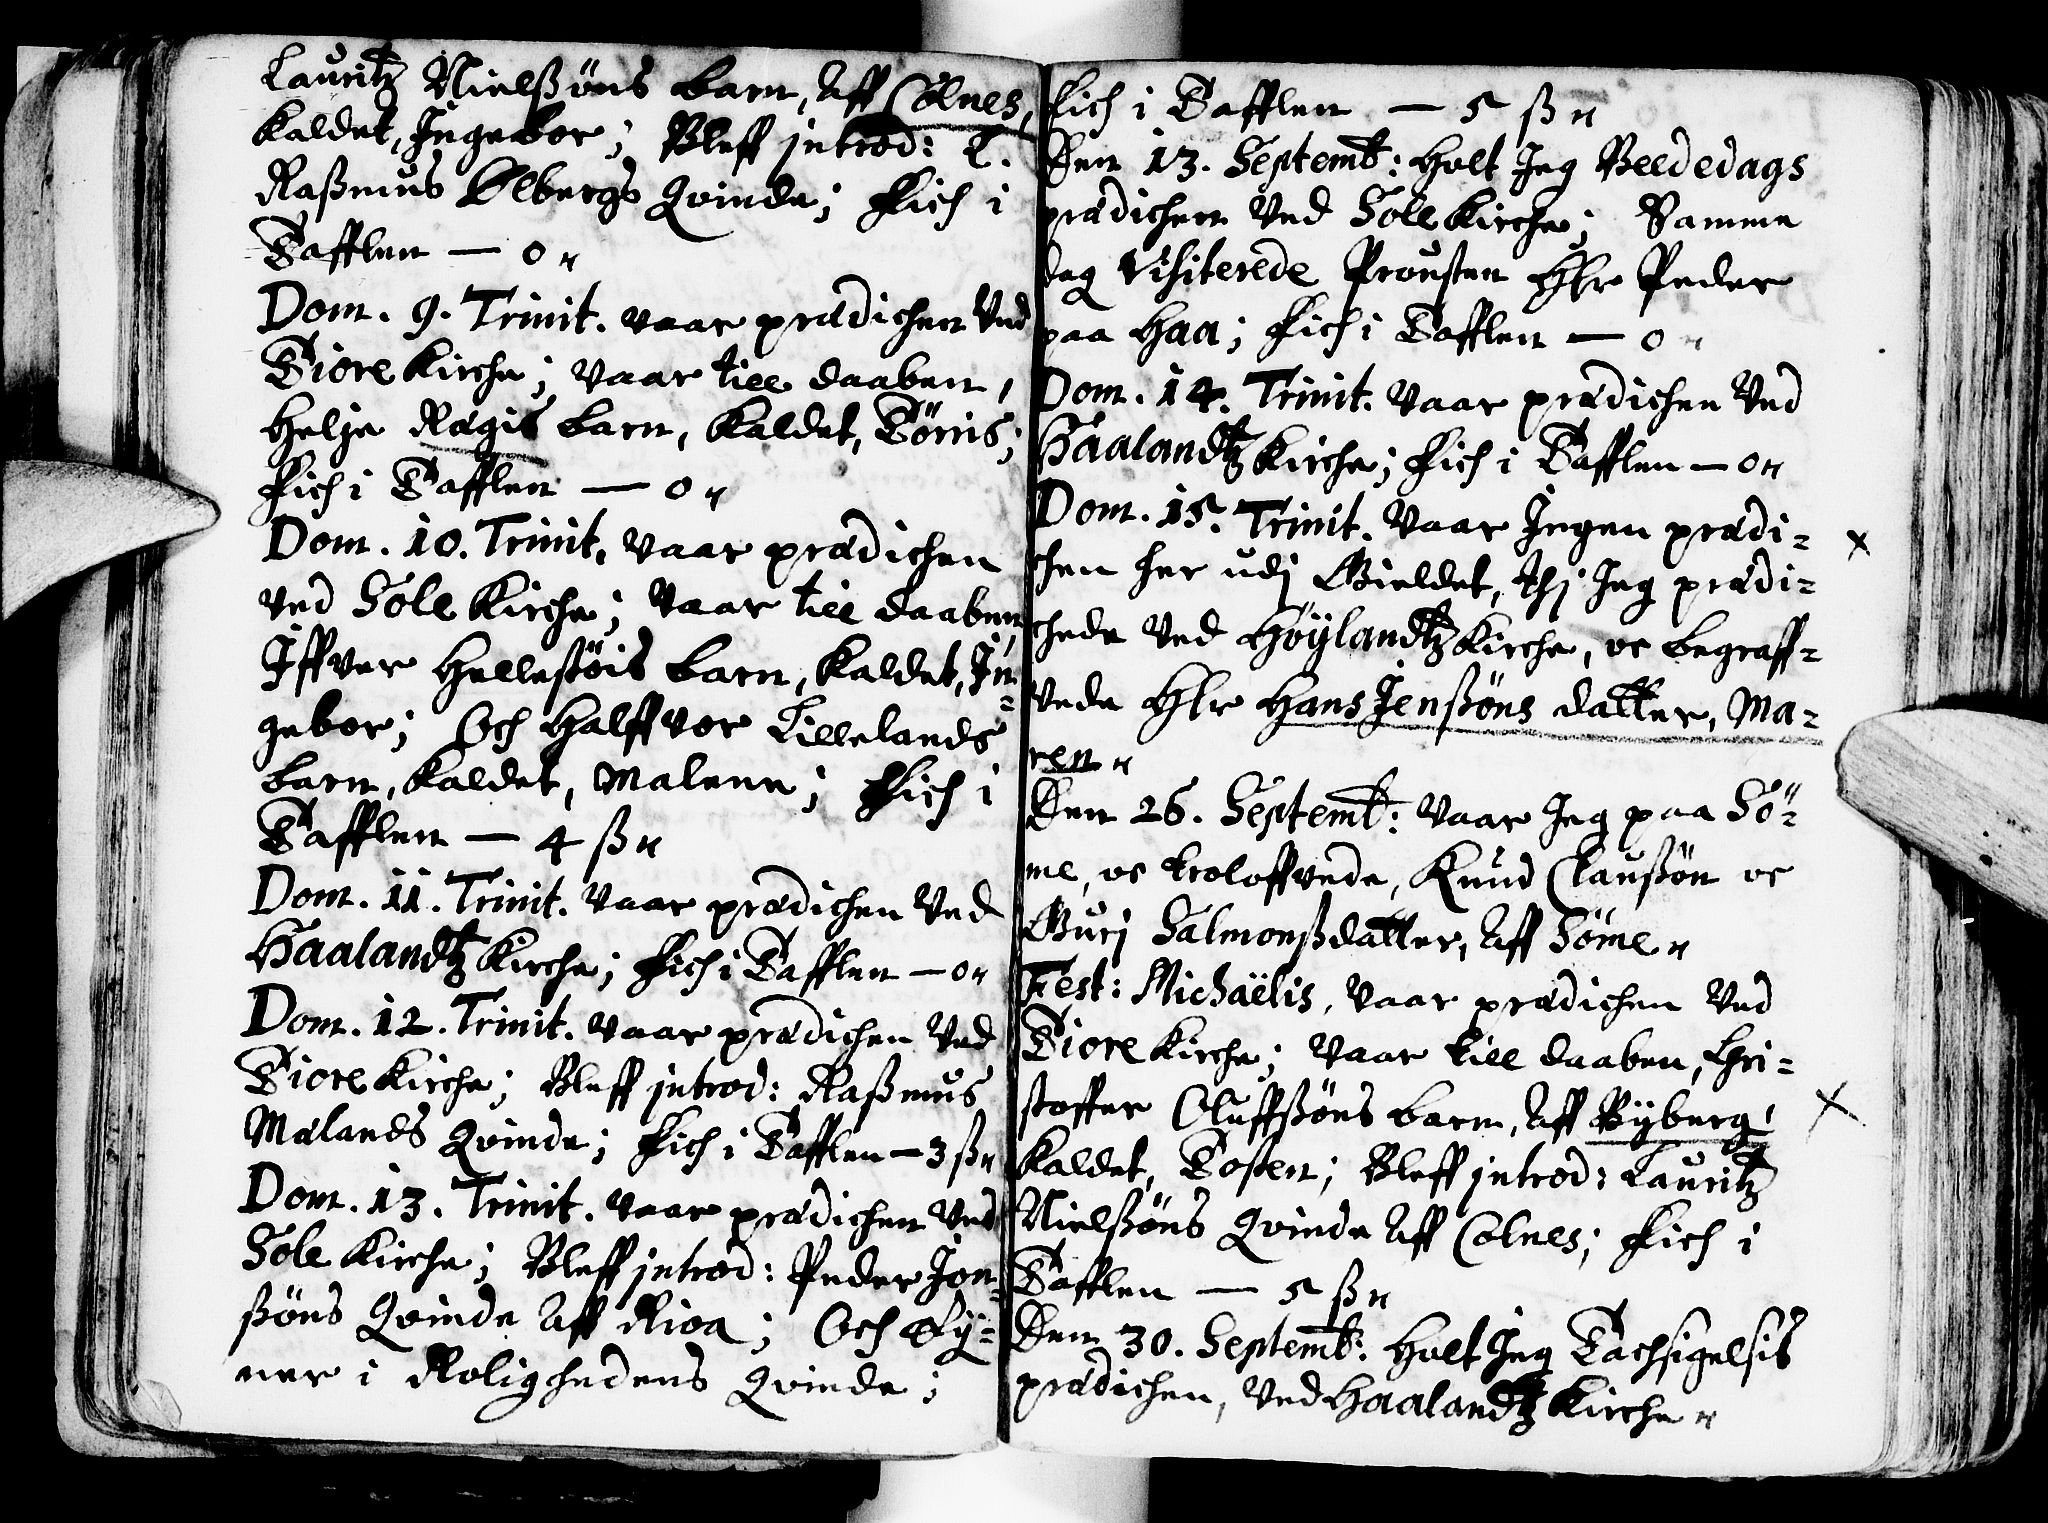 Lauritz Nielßöns barn, Aff Colnes,
kaldet, Ingebor; Bleff introd: T.
Raßmus Ølbergs Qvinde; Fich i
Tafflen — 0 "
Dom. 9. Trinit. vaar prædichen Ved
Tiore Kirche; vaar till daaben,
Helje Rægis barn, kaldet, Törris;
Fich i Tafflen — 0 "
Dom. 10. Trinit. vaar prædichen
ved Sole Kirche; vaar till daaben
Iffver Hellestöis barn, kaldet, In-
gebor; Och Halffvor Lillelands
barn, kaldet, Malene; Fich i
Tafflen — 4 ß "
Dom. 11. Trinit. vaar prædichen Ved
Haalandtz Kirche; Fich i Tafflen — 0 "
Dom. 12. Trinit. vaar prædichen Ved
Tiore Kirche; Bleff introd: Raßmus
Mælands Qvinde; Fich i Tafflen — 3 ß "
Dom. 13. Trinit. vaar prædichen Ved
Sole Kirche; Bleff introd: Peder Jon-
ßöns Qvinde Aff Risa; Och Ey-
ner i Rolighedens Qvinde;
Fich i Tafflen — 5 ß "
Den 13. Septemb: Holt Jeg Beededags
prædichen Ved Sole Kirche; Samme
dag Visiterede Prousten Hlr Peder
paa Haa; Fich i Tafflen — 0 "
Dom. 14. Trinit. vaar prædichen Ved
Haalandtz Kirche; Fich i Tafflen — 0 "
Dom. 15. Trinit. vaar Ingen prædi-
chen her udj Gieldet, thj Jeg prædi-
chede Ved Höylandtz Kirche, oc begraff-
vede Hlr Hans Jenßöns datter, Ma-
ren "
Den 26. Septemb: vaar Jeg paa Sö-
me, oc troloffvede, Knud Claußön oc
Gurj Salmonßdatter, Aff Söme "
Fest: Michaëlis, vaar prædichen Ved
Tiore Kirche; vaar till daaben, Chri-
stoffer Oluffßöns barn, Aff Byberg,
kaldet, Tosten; Bleff introd: Lauritz
Nielßöns Qvinde Aff Colnes; Fich i
Tafflen — 5 ß "
Den 30. Septemb: Holt Jeg Tachsigelsis
prædichen, Ved Haalandtz Kirche "